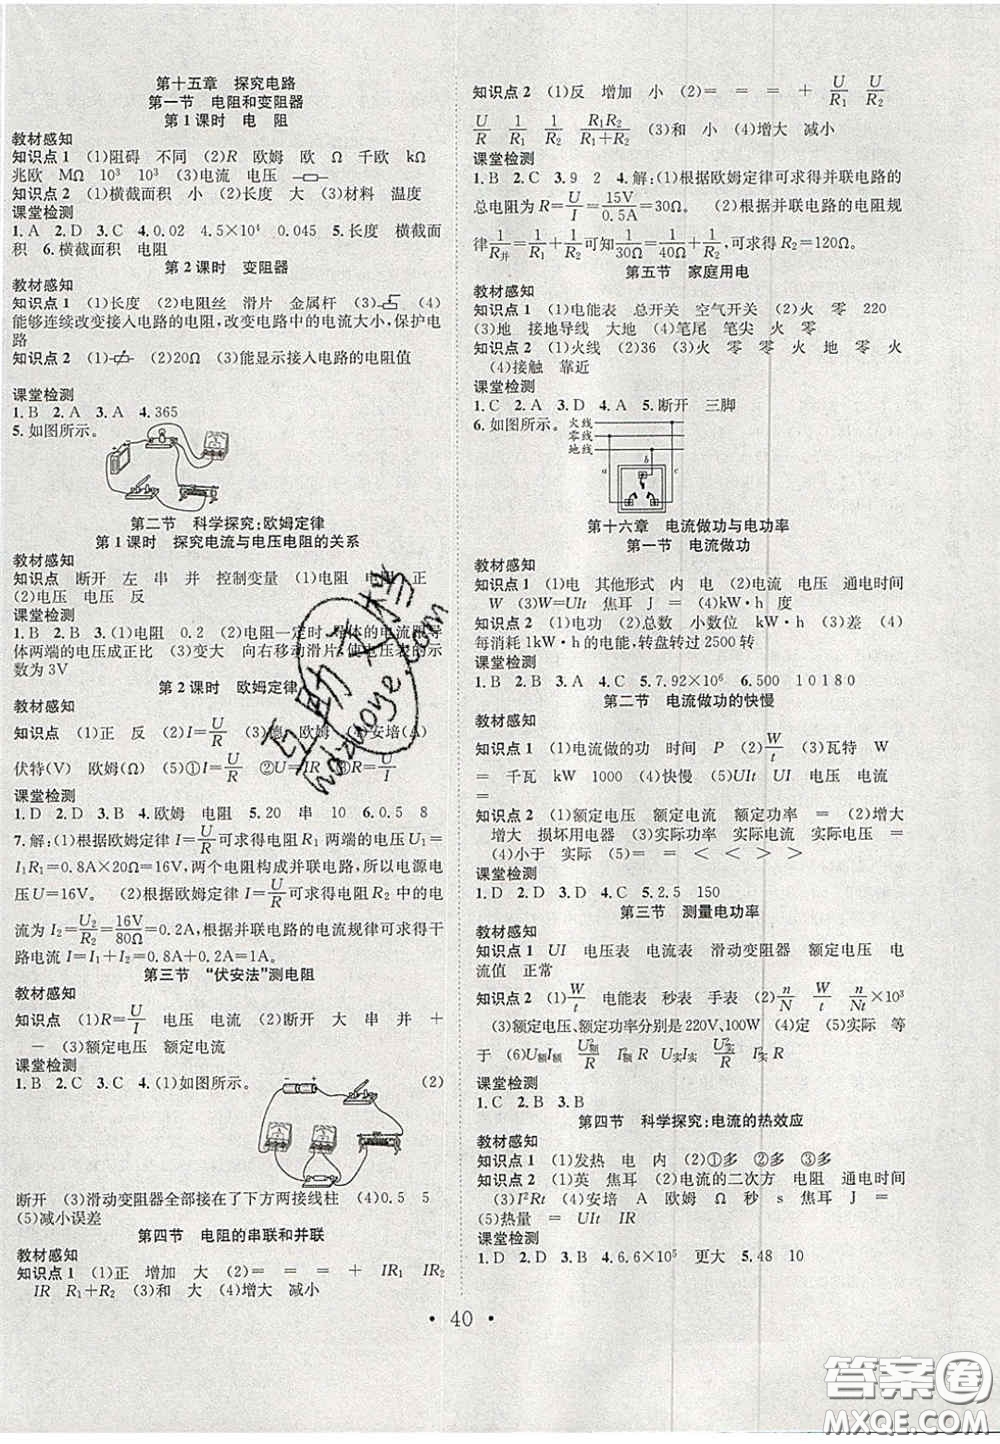 第十五章　探究电路
第一节　电阻和变阻器
第1课时　电　阻
教材感知
知识点1　(1)阻碍　不同　(2)R　欧姆　欧　Ω　千欧　kΩ
兆欧　MΩ　10³　10³　(3)电流　电压
知识点2　(1)横截面积　小　(2)长度　大　(3)材料　温度
课堂检测
1.A　2.D　3.C　4.0.02　4.5×10⁴　0.045　5.长度　横截面
积　6.横截面积　电阻
第2课时　变阻器
教材感知
知识点1　(1)长度　(2)电阻丝　滑片　金属杆　(3)　(4)
能够连续改变接入电路的电阻,改变电路中的电流大小,保护电
路
知识点2　(1)　(2)20Ω　(3)能显示接入电路的电阻值
课堂检测
1.B　2.A　3.A　4.365
5.如图所示。
第二节　科学探究:欧姆定律
第1课时　探究电流与电压电阻的关系
教材感知
知识点　断开　左　串　并　控制变量　(1)电阻　电阻　正
(2)电压　电压　反
课堂检测
1.B　2.B　3.(1)电阻　0.2　(2)电阻一定时,导体的电流跟导
体两端的电压成正比　(3)变大　向右移动滑片,使电压表的示
数为3V
第2课时　欧姆定律
教材感知
知识点　(1)正　反　(2)I=U/R　(3)德　欧姆　(4)安培(A)
伏特(V)　欧姆(Ω)　(5)①I=U/R　②U=IR　③R=U/I
课堂检测
1.D　2.D　3.B　4.欧姆　电阻　5.20　串　10　6.0.5　8
7.解:(1)根据欧姆定律I=U/R可求得电阻R₁两端的电压U₁=
I₁R₁=0.8A×20Ω=16V,两个电阻构成并联电路,所以电源电
压U=16V。　(2)根据欧姆定律I=U/R可求得电阻R₂中的电
流为I₂=U₂/R₂=16V/80Ω=0.2A,根据并联电路的电流规律可求得干
路电流I=I₁+I₂=0.8A+0.2A=1A。
第三节　“伏安法”测电阻
教材感知
知识点　(1)R=U/I　电压　电流　(2)断开　大　串　并　+
－　(3)额定电压　额定电流
课堂检测
1.B　2.C　3.C　4.(1)如图所示。　(2)
断开　(3)滑动变阻器全部接在了下方两接线柱　(4)0.5　5
(5)减小误差
第四节　电阻的串联和并联
教材感知
知识点1　(1)正　增加　大　(2)=　=　=　+　IR₁　IR₂
IR　R₁+R₂　(3)和　大　(4)增大　减小
知识点2　(1)反　增加　小　(2)=　=　=　+　U/R₁　U/R₂
U/R　1/R₁　1/R₂　R₁R₂/(R₁+R₂)　(3)和　小　(4)增大　减小
课堂检测
1.B　2.C　3.9　2　4.解:(1)根据欧姆定律可求得并联电路的
总电阻为R=U/I=15V/0.5A=30Ω。　(2)根据并联电路的电阻规
律1/R并=1/R₁+1/R₂可知1/30Ω=1/40Ω+1/R₂,可求得R₂=120Ω。
第五节　家庭用电
教材感知
知识点1　(1)电能表　总开关　空气开关　(2)火　零　220
(3)地　接地导线　大地　(4)笔尾　笔尖　火　零
知识点2　(1)火线　(2)13.64　(3)火　零　零　火　地　零　火
(4)接触　靠近
课堂检测
1.C　2.A　3.D　4.A　5.断开　三脚
6.如图所示。
火线
零线
地线
a　b　c
第十六章　电流做功与电功率
第一节　电流做功
教材感知
知识点1　(1)电　其他形式　内　电　(2)电流　电压　通电时间
W　(3)W=UIt　焦耳　J　=　(4)kW·h　度
知识点2　(1)电功　(2)总数　小数位　kW·h　(3)差　(4)
每消耗1kW·h的电能,转盘转过2500转
课堂检测
1.B　2.B　3.C　4.C　5.7.92×10⁶　6.500　10180
第二节　电流做功的快慢
教材感知
知识点1　(1)电流做的功　时间　P　(2)W/t　(3)瓦特　W
=　千瓦　kW　1000　(4)快慢　(5)UIt　UI　电压　电流
=
知识点2　(1)额定电压　额定电流　额定功率　=　(2)增大
增大　损坏用电器　(3)实际功率　实际电流　实际电压　=
(4)小于　实际　(5)=　=　<　<　>　>
课堂检测
1.D　2.D　3.D　4.C　5.2.5　150
第三节　测量电功率
教材感知
知识点1　UI　电压表　电流表　滑动变阻器　额定电压　电
流值　正常
知识点2　(1)W/t　电能表　秒表　手表　(2)n/N　W/t　n/Nt×10³
(3)额定电压、额定功率分别是220V、100W　(4)定　(5)实际　等
于　(6)U额I额　U额²/R　I额²R　U实I实　U实²/R　I实²R
课堂检测
1.C　2.D　3.B
第四节　科学探究:电流的热效应
教材感知
知识点1　(1)发热　电　内　(2)①多　②多　③多
知识点2　(1)英　焦耳　(2)电流的二次方　电阻　通电时间
(3)I²Rt　(4)安培　A　欧姆　Ω　秒　s　焦耳　J　=
(5)热量　=　UIt　IR
课堂检测
1.D　2.D　3.B　4.6.6×10⁵　更大　5.48　10
• 40 •
互助文档
hdzuoye.com
答案圈
MXQE.COM